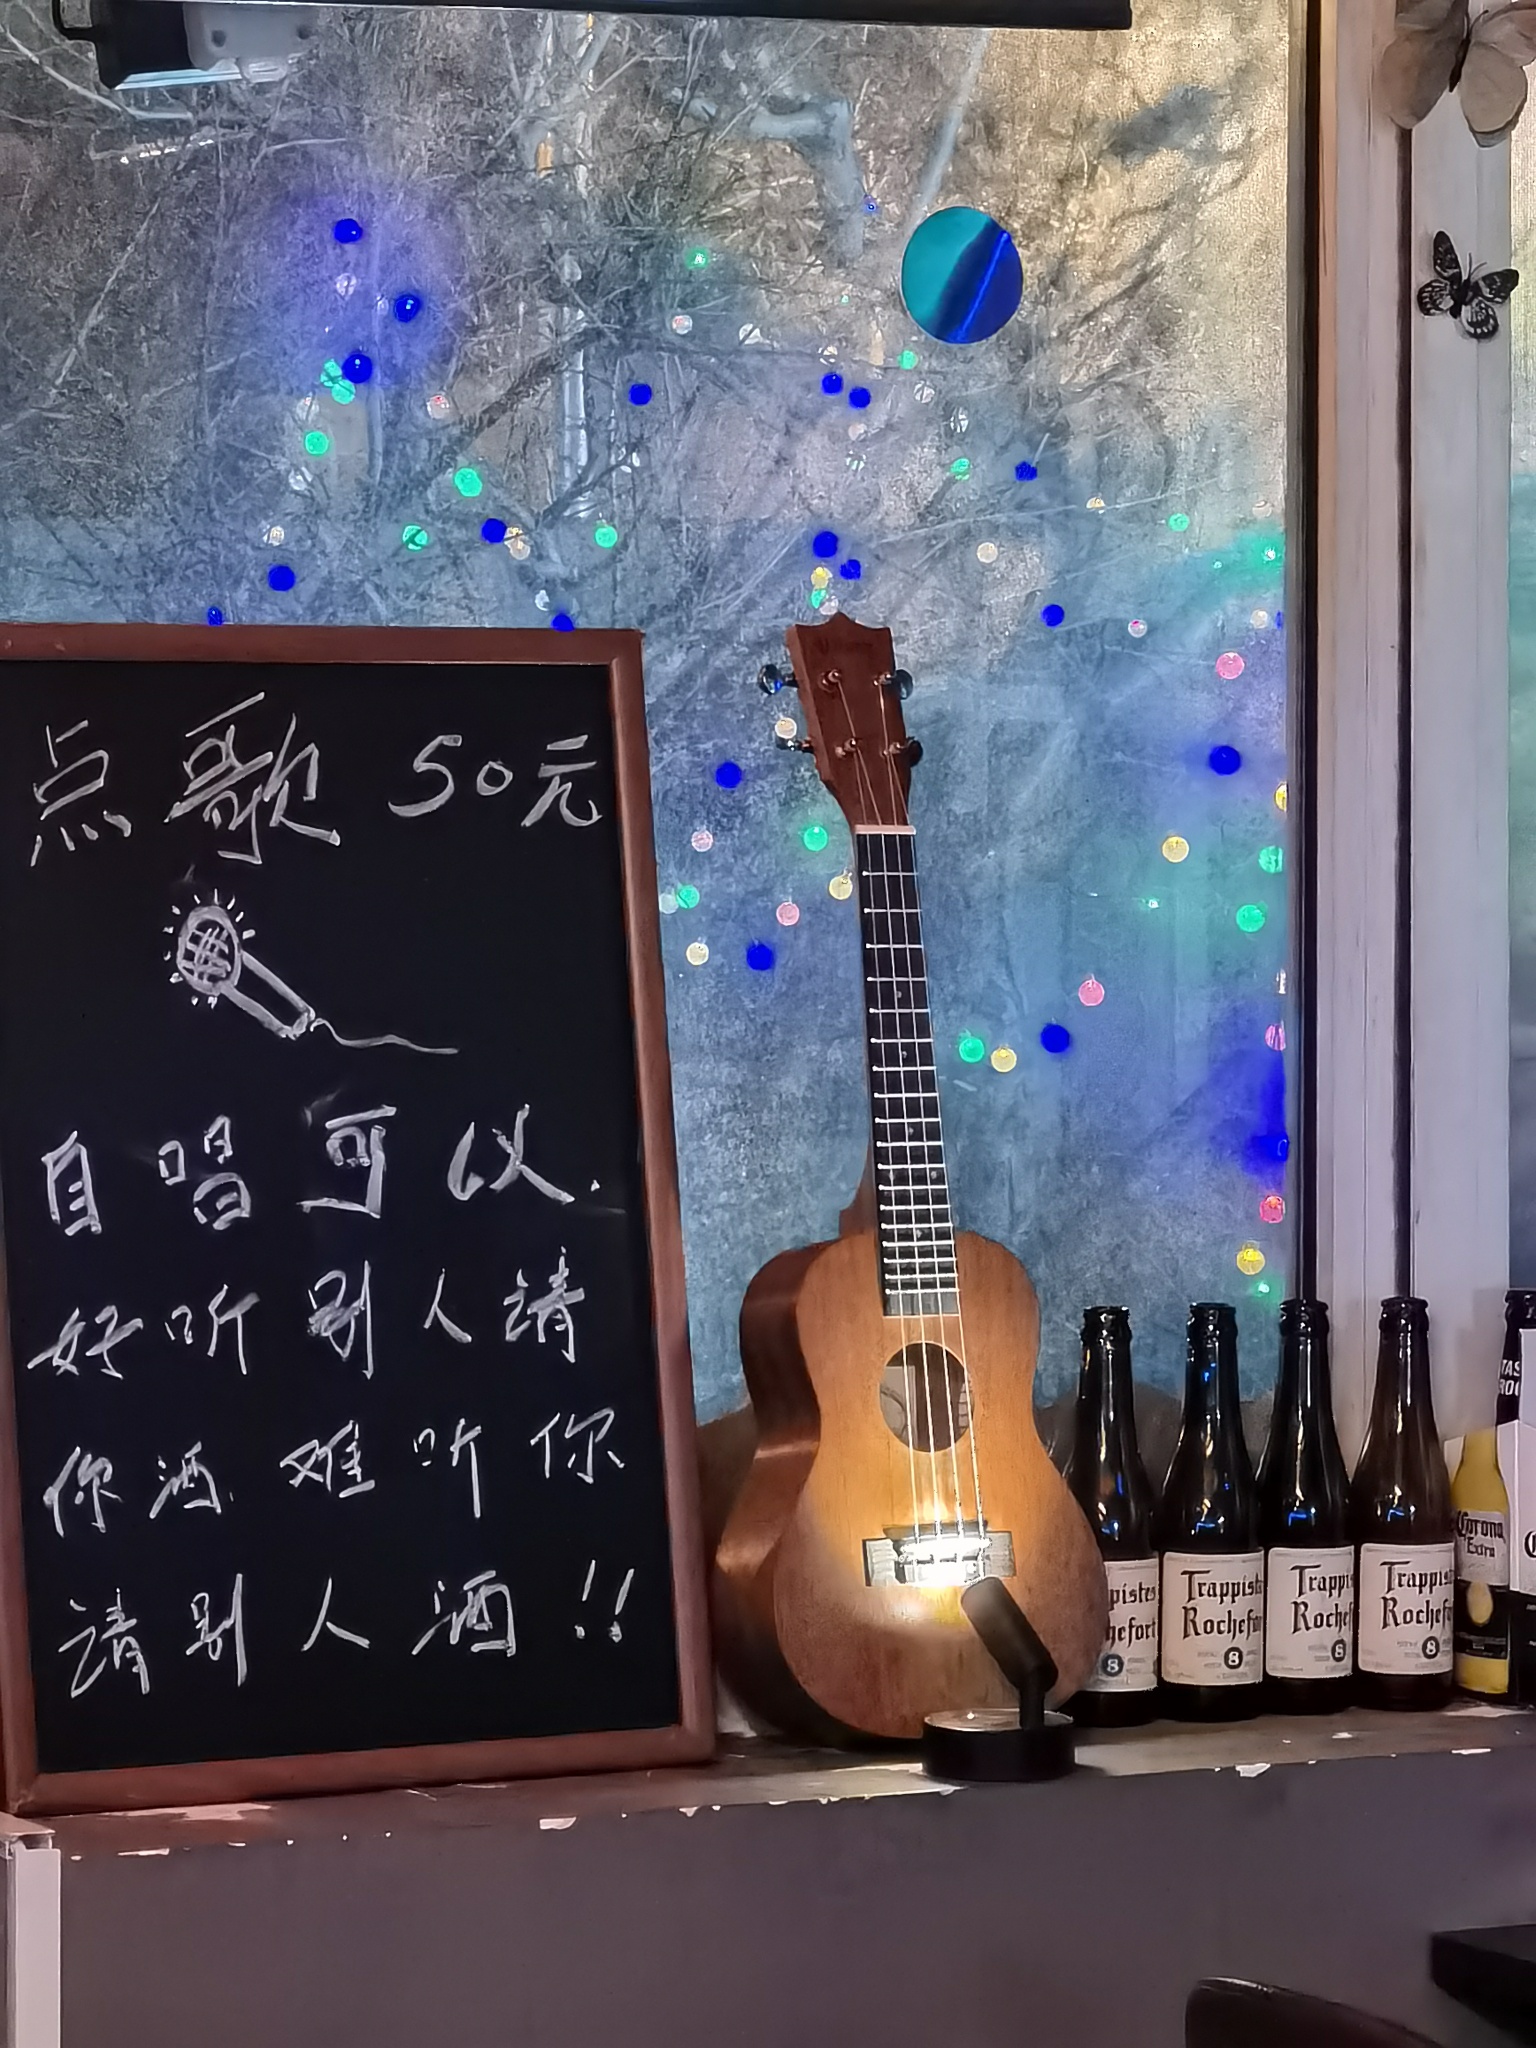 点歌 50元
自唱可以.
好听别人请
你酒难听你
请别人酒!!
pistes
hefort
8
Trappist
Rochefor
8
Trappis
Rochef
8
Trappis
Rochefo
8
Corona
Extra
TAS
ROC